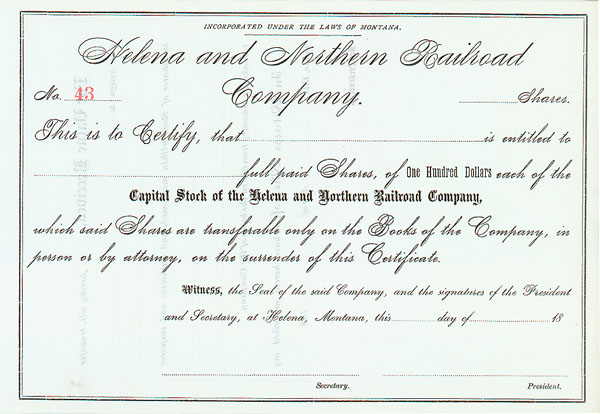 INCORPORATED UNDER THE LAWS OF MONTANA.
Helena and Northern Railroad
No. 43 Company. Shares.
This is to Certify, that is entitled to
full paid Shares, of One Hundred Dollars each of the
Capital Stock of the Helena and Northern Railroad Company,
which said Shares are transferable only on the Books of the Company, in
person or by attorney, on the surrender of this Certificate.
Witness, the Seal of the said Company, and the signatures of the President
and Secretary, at Helena, Montana, this day of 18
Secretary. President.